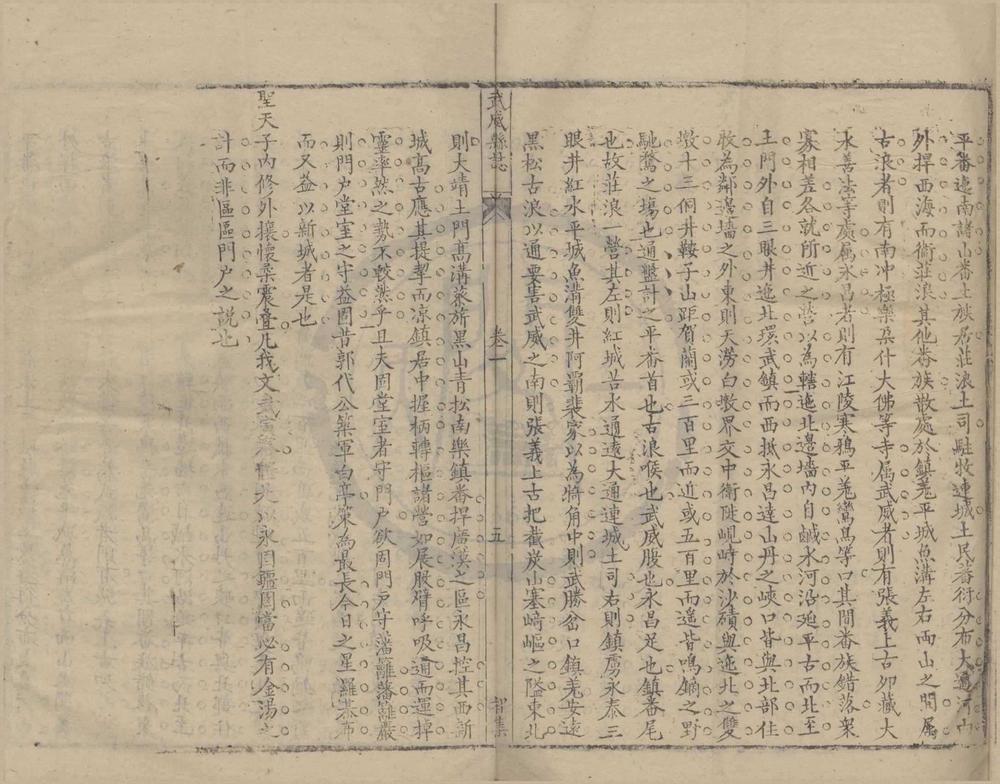 平番逺南諸山番土族居莊浪土司駐牧連城土民蕃衍分布大通河内
外捍西海而衛莊浪其他番族散處於鎮羌平城魚溝左右兩山之間属
古浪者則有南冲極樂朶什大佛等寺属武威者則有張義上古夘藏大
水善法等廣属永昌者則有江陵寒鴉平羌鸞鳥等口其間番族錯落衆
寡相差各就所近之营以為轄迤北邉墻内自鹹水河沿迤平古而北至
土門外自三眼井迤北環武鎮而西抵永昌達山丹之峽口皆與北部住
牧為鄰邉墻之外東則天澇白墩界交中衛陡峴峙於沙磧與迤北之雙
墩十三個井鞍子山距賀蘭或三百里而近或五百里而遥皆鳴鏑之野
馳騖之塲也通盤計之平番首也古浪喉也武威腹也永昌足也鎮番尾
也故莊浪一營其左則紅城苦水通逺大通連城土司右則鎮虜永泰三
眼井紅水平城魚溝雙井阿霸裴家以為犄角中則武勝岔口鎮羌安逺
黑松古浪以通要害武威之南則張義上古把截炭山塞﨑嶇之隘東北
武威縣誌
卷一
五
智集
則大靖土門髙溝蔡旂黒山青松南樂鎮番捍廣漠之區永昌控其西新
城髙古應其提挈而凉鎮居中握柄轉樞諸營如展股臂呼吸通而運掉
靈率然之勢不較然乎且夫固堂室者守門戸欲固門戸守藩籬藩籬嚴
則門戸堂室之守益固昔郭代公築軍白亭策為最長今日之星羅棊布
而又益以新城者是也
聖天子内修外攘懷柔震疊凡我文武　　以永固疆圉當必有金湯之
計而非區區門戸之說也